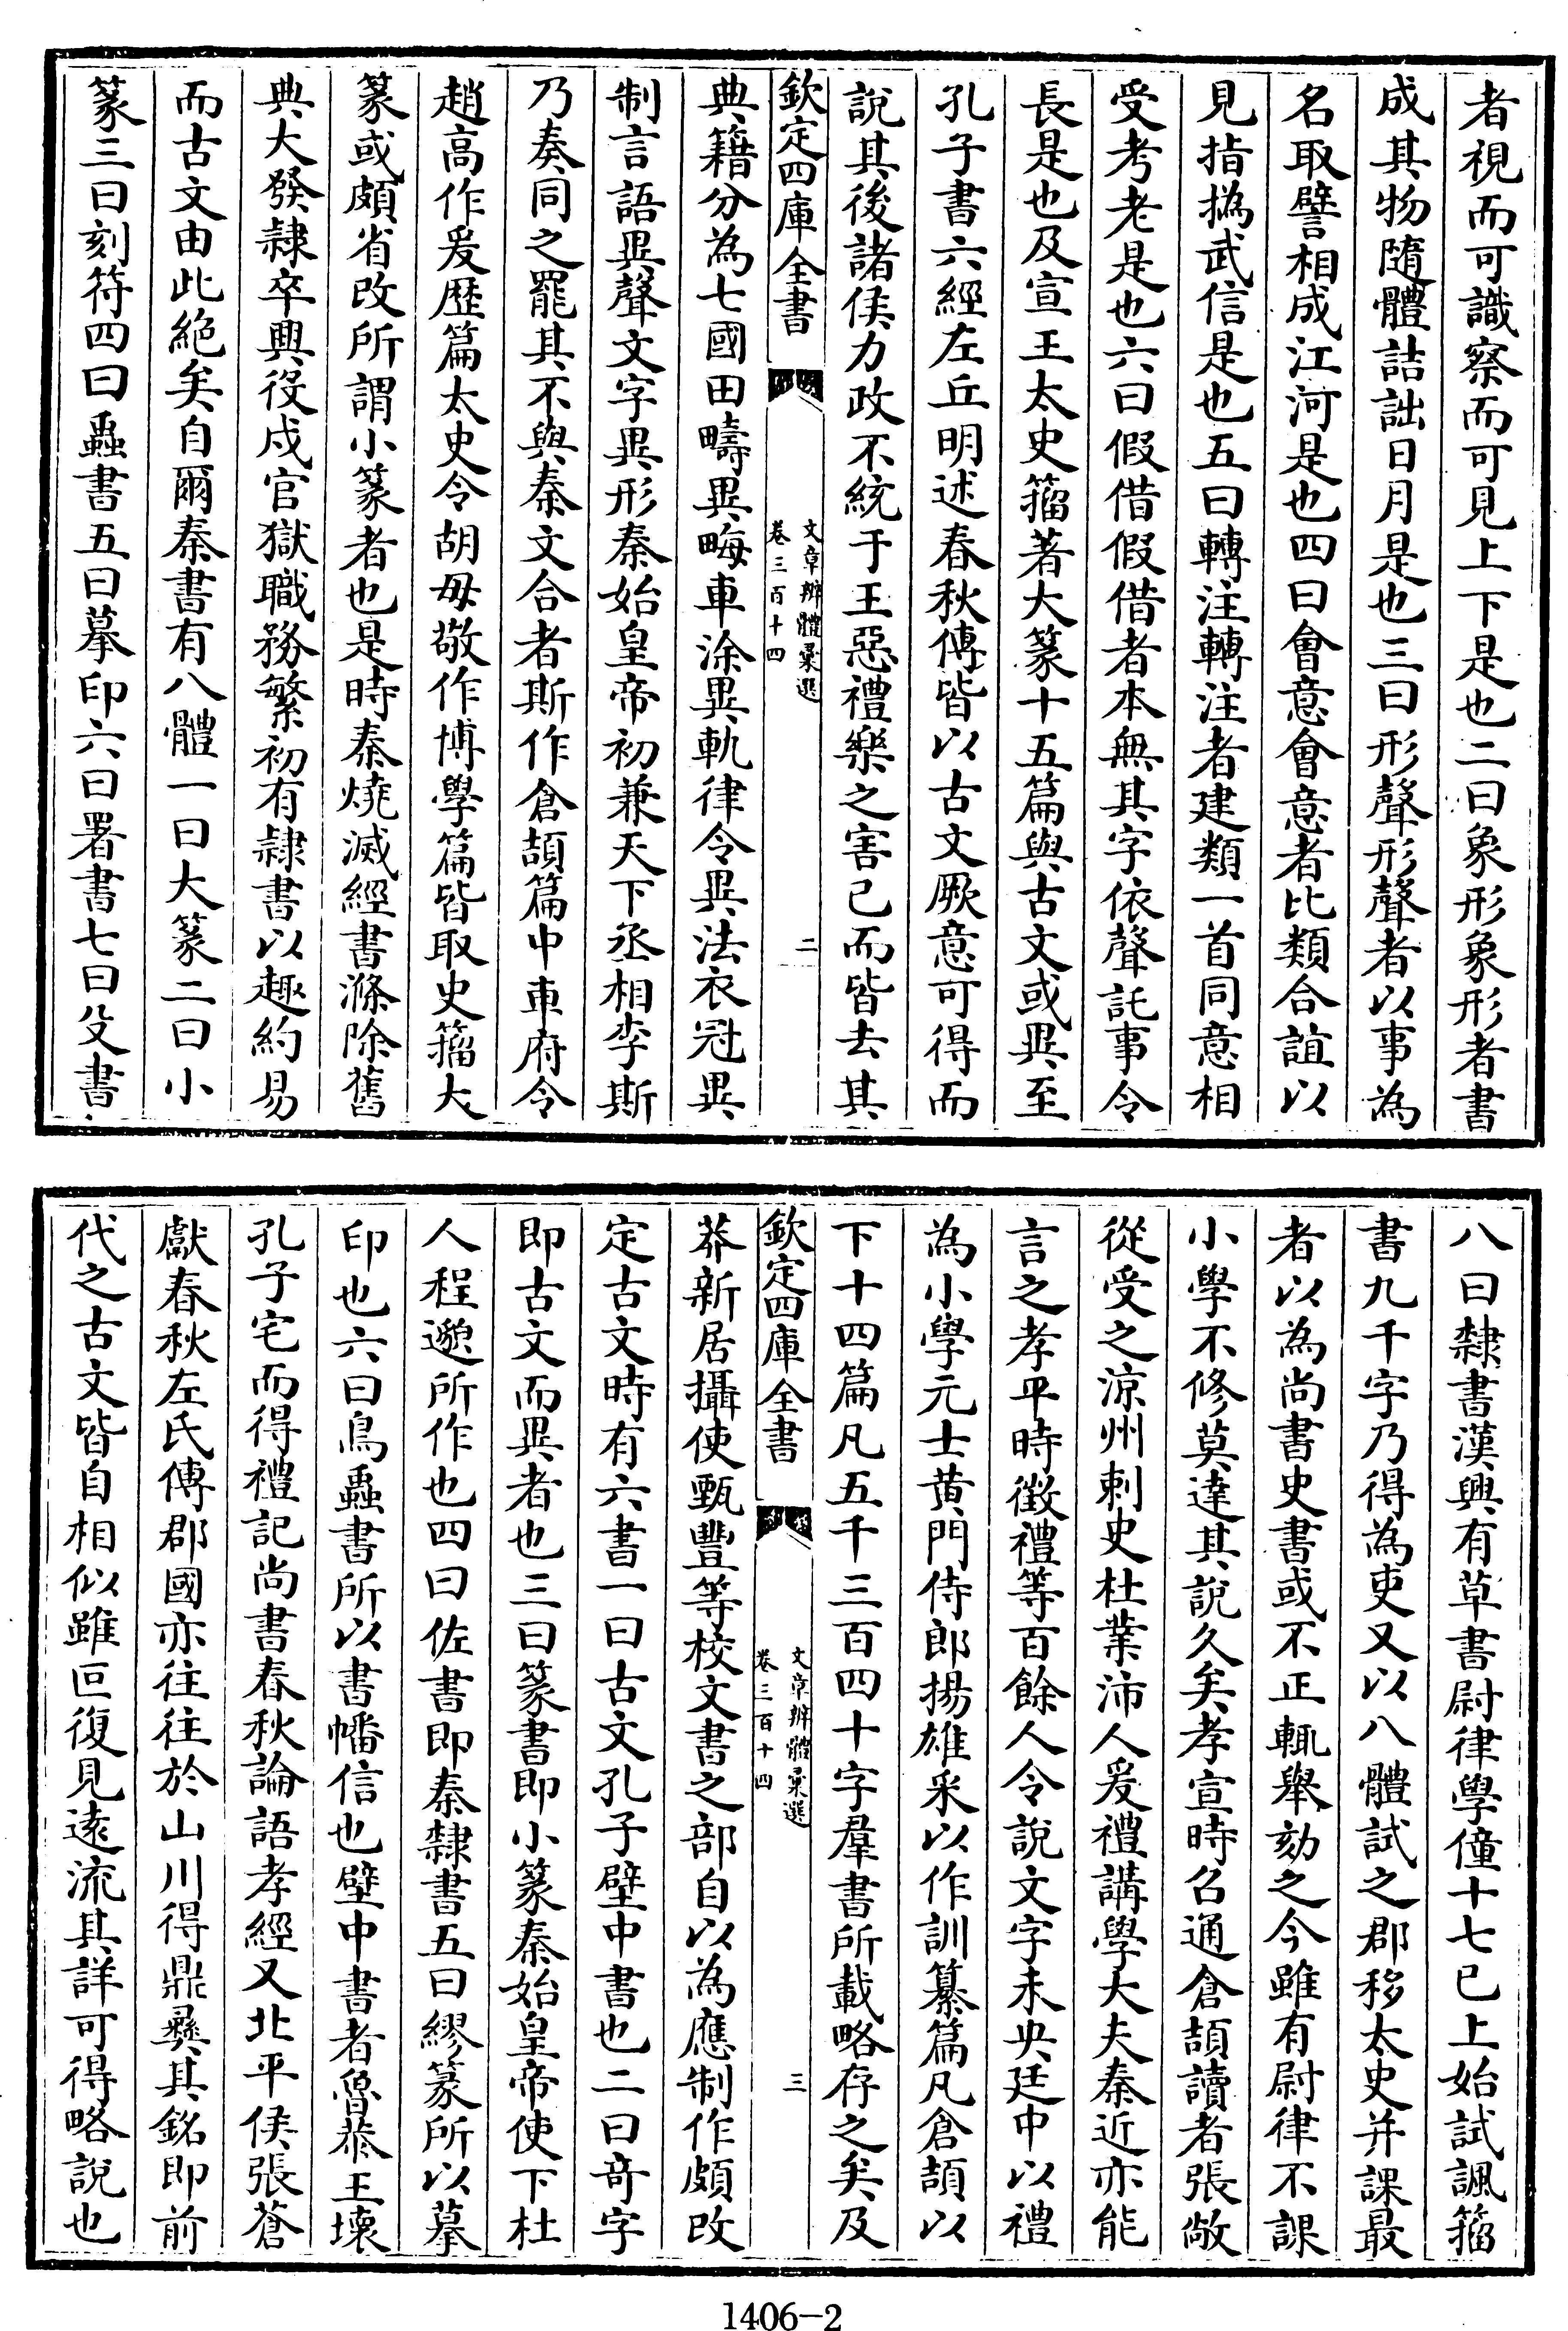 者視而可識察而可見上下是也二曰象形象形者書
成其物隨體詰詘日月是也三曰形聲形聲者以事為
名取譬相成江河是也四曰會意會意者比類合誼以
見指撝武信是也五曰轉注轉注者建類一首同意相
受考老是也六曰假借假借者本無其字依聲託事令
長是也及宣王太史籀著大篆十五篇與古文或異至
孔子書六經左丘明述春秋傳皆以古文厥意可得而
說其後諸侯力政不統于王惡禮樂之害己而皆去其
欽定四庫全書
文章辨體彙選
卷三百十四
二
典籍分為七國田疇異畮車涂異軌律令異法衣冠異
制言語異聲文字異形秦始皇帝初兼天下丞相李斯
乃奏同之罷其不與秦文合者斯作倉頡篇中車府令
趙高作爰歷篇太史令胡毋敬作博學篇皆取史籀大
篆或頗省改所謂小篆者也是時秦燒滅經書滌除舊
典大發隸卒興役戍官獄職務繁初有隸書以趣約易
而古文由此絕矣自爾秦書有八體一曰大篆二曰小
篆三曰刻符四曰蟲書五曰摹印六曰署書七曰殳書
八曰隸書漢興有草書尉律學僮十七已上始試諷籀
書九千字乃得為吏又以八體試之郡移太史并課最
者以為尚書史書或不正輒舉劾之今雖有尉律不課
小學不修莫達其說久矣孝宣時召通倉頡讀者張敞
從受之涼州刺史杜業沛人爰禮講學大夫秦近亦能
言之孝平時徵禮等百餘人令說文字未央廷中以禮
為小學元士黃門侍郎揚雄采以作訓纂篇凡倉頡以
下十四篇凡五千三百四十字羣書所載略存之矣及
欽定四庫全書
文章辨體彙選
卷三百十四
三
莽新居攝使甄豐等校文書之部自以為應制作頗改
定古文時有六書一曰古文孔子壁中書也二曰奇字
即古文而異者也三曰篆書即小篆秦始皇帝使下杜
人程邈所作也四曰佐書即秦隸書五曰繆篆所以摹
印也六曰鳥蟲書所以書幡信也壁中書者魯恭王壞
孔子宅而得禮記尚書春秋論語孝經又北平侯張蒼
獻春秋左氏傳郡國亦往往於山川得鼎彝其銘即前
代之古文皆自相似雖叵復見遠流其詳可得略說也
1406-2